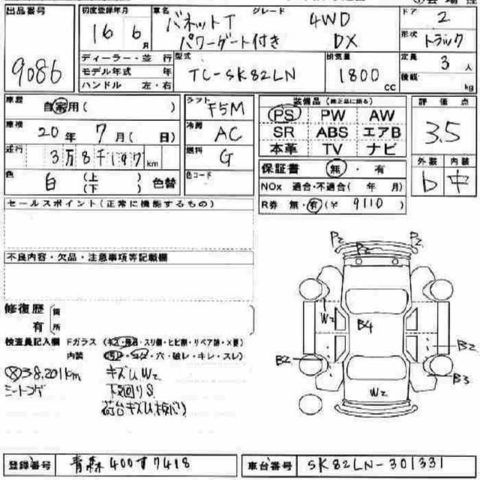 出品番号 初度登録年月 車名 グレード ドア
9086 16年 6月 バネットT 4WD 2
パワーゲート付き DX 形状 トラック
ディーラー・並行 型式 排気量 定員
モデル年式 年 TC-SK82LN 1800cc 3人
ハンドル 左・右 積載 kg
車歴 自家用( ) シフト F5M 装備品(純正品に限る) 評価点
PS PW AW 3.5
車検 20年 7月(日) 冷房 AC SR ABS エアB
本革 TV ナビ
走行 3万8千197km 燃料 G 外装 内装
保証書 無・有 b 中
色 白 (上)(下) 色替 色コード NOx 適合・不適合( 年 月)
R券 無・有(¥ 9110 )
セールスポイント(正常に機能するもの)
不良内容・欠品・注意事項等記載欄
P2 P2
P2
修復歴 箇
有 所
W2 B4
検査員記入欄 Fガラス (キズ・飛石・スリ傷・ヒビ割・リペア跡・X要)
B2 B2
内装 (汚レ・コゲ・穴・破レ・キレ・スレ)
38,201km キズW2 B3
シートコゲ 下回りS W2
荷台キズU(板バリ)
登録番号 青森400す7418 車台番号 SK82LN-301331